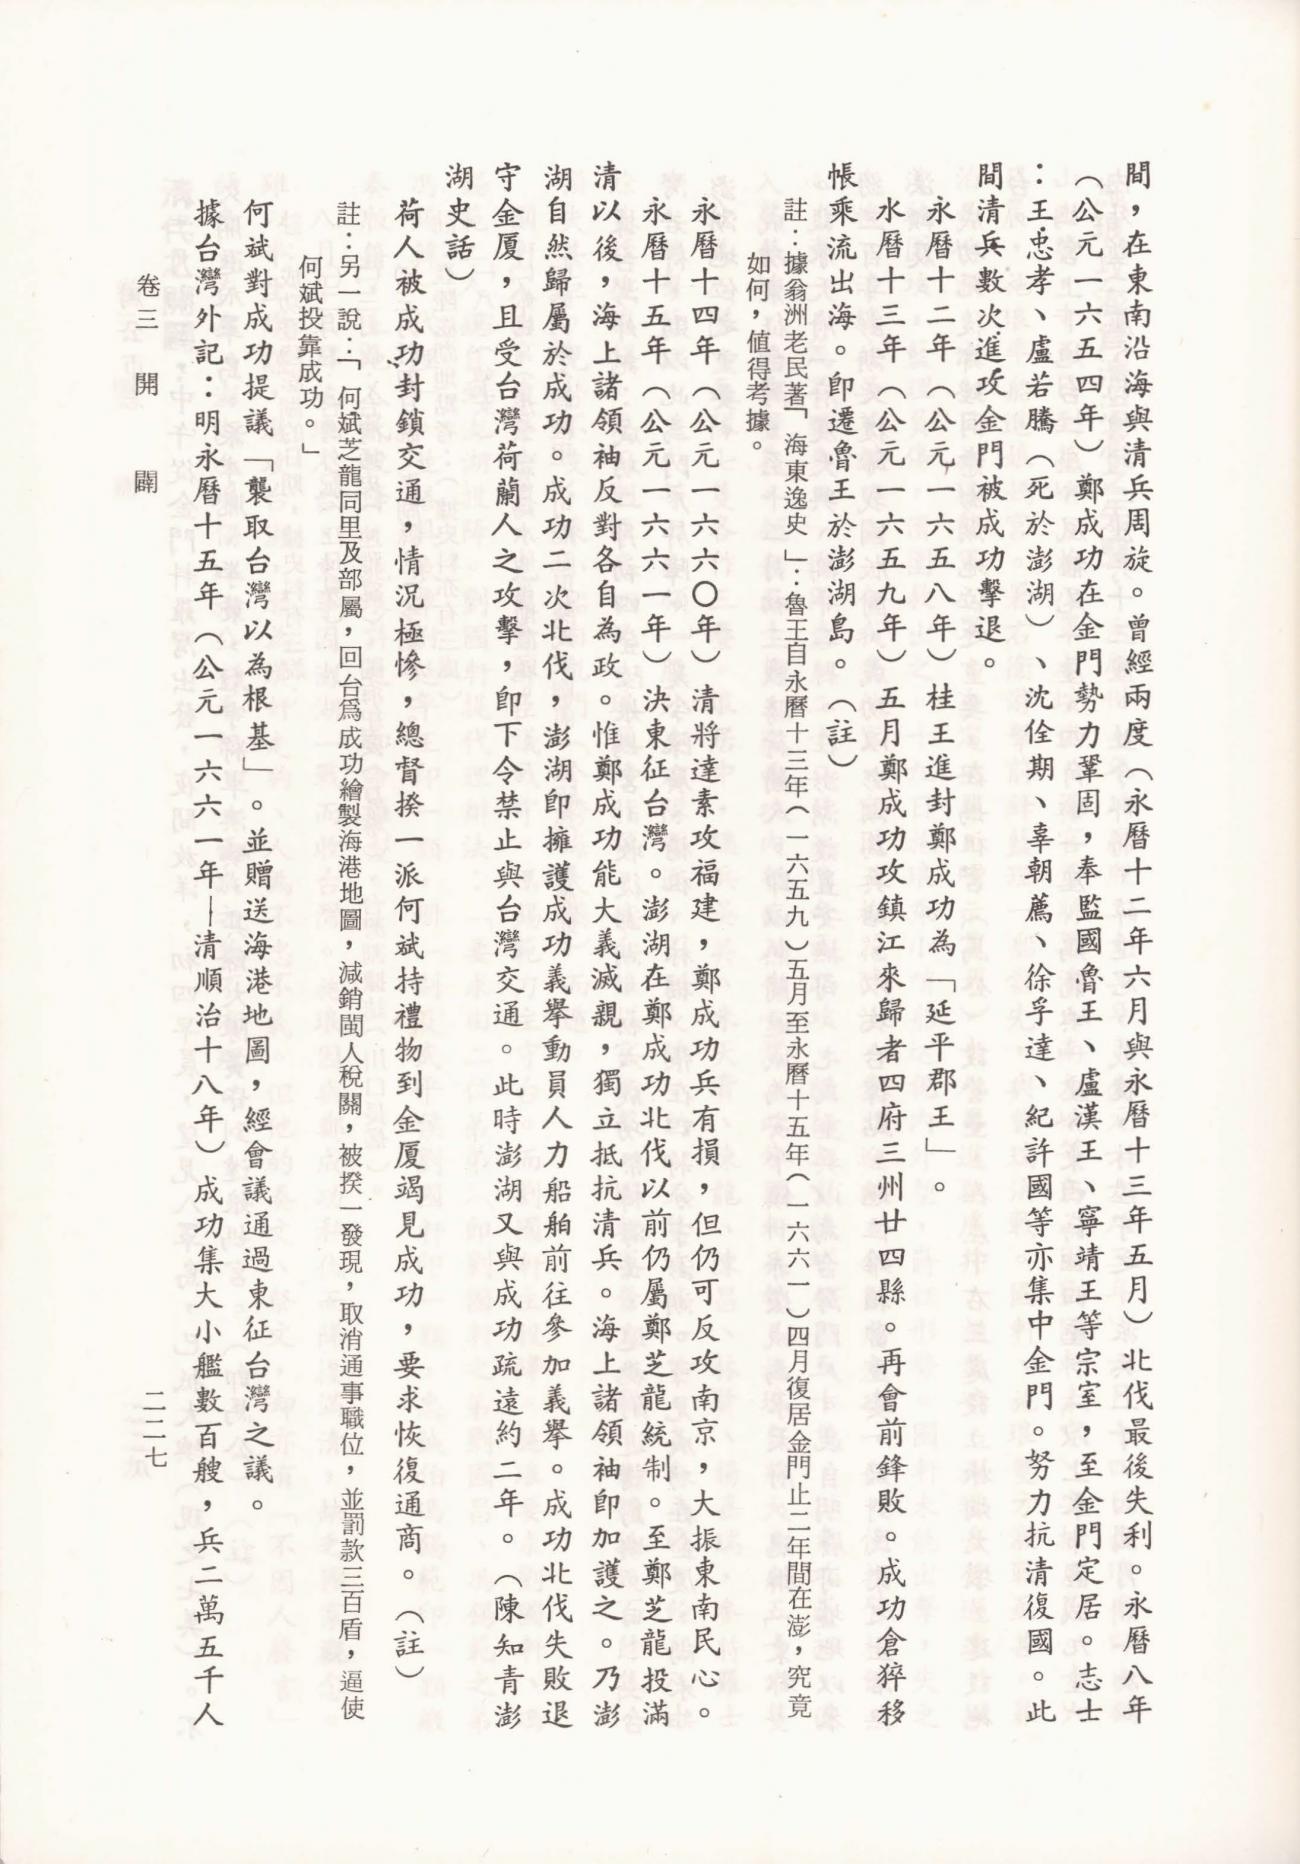 間，在東南沿海與清兵周旋。曾經兩度（永曆十二年六月與永曆十三年五月）北伐最後失利。永曆八年
（公元一六五四年）鄭成功在金門勢力鞏固，奉監國魯王、盧漢王、寧靖王等宗室，至金門定居。志士
：王忠孝、盧若騰（死於澎湖）、沈佺期、辜朝薦、徐孚達、紀許國等亦集中金門。努力抗清復國。此
間清兵數次進攻金門被成功擊退。
永曆十二年（公元一六五八年）桂王進封鄭成功為「延平郡王」。
水曆十三年（公元一六五九年）五月鄭成功攻鎮江來歸者四府三州廿四縣。再會前鋒敗。成功倉猝移
帳乘流出海。即遷魯王於澎湖島。（註）
註：據翁洲老民著「海東逸史」：魯王自永曆十三年（一六五九）五月至永曆十五年（一六六一）四月復居金門止二年間在澎，究竟
如何，值得考據。
永曆十四年（公元一六六〇年）清將達素攻福建，鄭成功兵有損，但仍可反攻南京，大振東南民心。
永曆十五年（公元一六六一年）決東征台灣。澎湖在鄭成功北伐以前仍屬鄭芝龍統制。至鄭芝龍投滿
清以後，海上諸領袖反對各自為政。惟鄭成功能大義滅親，獨立抵抗清兵。海上諸領袖即加護之。乃澎
湖自然歸屬於成功。成功二次北伐，澎湖即擁護成功義舉動員人力船舶前往參加義舉。成功北伐失敗退
守金厦，且受台灣荷蘭人之攻擊，即下令禁止與台灣交通。此時澎湖又與成功疏遠約二年。（陳知青澎
湖史話）
荷人被成功封鎖交通，情況極慘，總督揆一派何斌持禮物到金厦竭見成功，要求恢復通商。（註）
註：另一說：「何斌芝龍同里及部屬，回台爲成功繪製海港地圖，減銷閩人稅關，被揆一發現，取消通事職位，並罰款三百盾，逼使
何斌投靠成功。」
何斌對成功提議「襲取台灣以為根基」。並贈送海港地圖，經會議通過東征台灣之議。
據台灣外記：明永曆十五年（公元一六六一年—清順治十八年）成功集大小艦數百艘，兵二萬五千人
卷三　開　闢
二二七